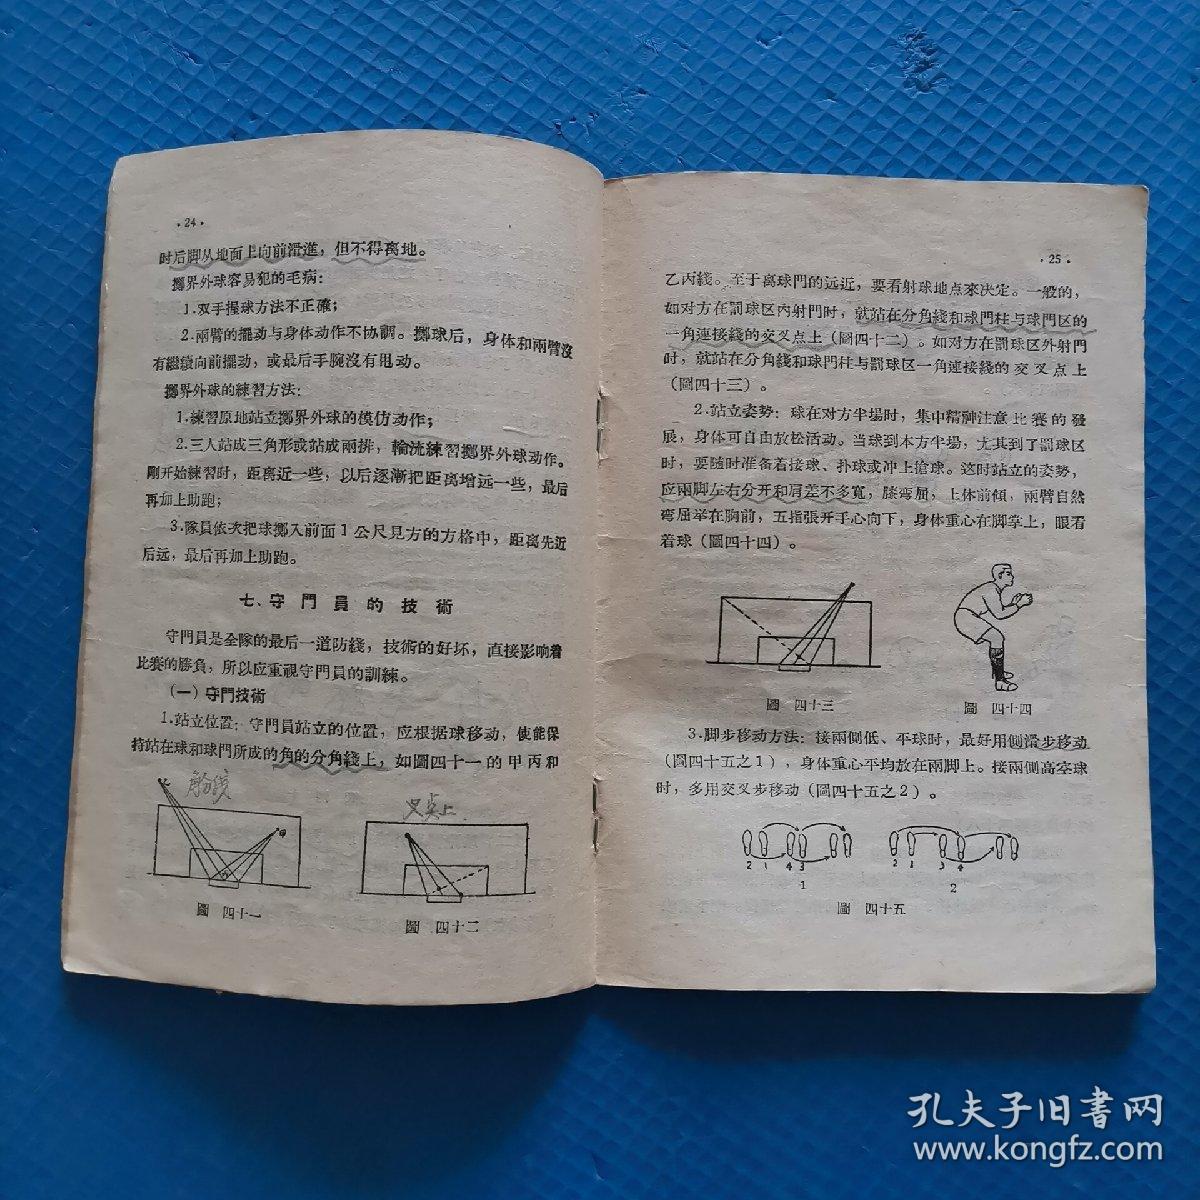 ·24·
时后脚从地面上向前滑進，但不得离地。
擲界外球容易犯的毛病：
1.双手握球方法不正確；
2.兩臂的擺动与身体动作不协調。擲球后，身体和兩臂沒
有繼續向前擺动，或最后手腕沒有甩动。
擲界外球的練習方法：
1.練習原地站立擲界外球的模仿动作；
2.三人站成三角形或站成兩排，輪流練習擲界外球动作。
剛开始練習时，距离近一些，以后逐漸把距离增远一些，最后
再加上助跑；
3.隊員依次把球擲入前面1公尺見方的方格中，距离先近
后远，最后再加上助跑。
七、守門員的技術
守門員是全隊的最后一道防綫，技術的好坏，直接影响着
比賽的勝負，所以应重視守門員的訓練。
（一）守門技術
1.站立位置：守門員站立的位置，应根据球移动，使能保
持站在球和球門所成的角的分角綫上，如圖四十一的甲丙和
角分线
叉点上
甲
圖 四十一
圖 四十二
·25·
乙丙綫。至于离球門的远近，要看射球地点來决定。一般的，
如对方在罰球区内射門时，就站在分角綫和球門柱与球門区的
一角連接綫的交叉点上（圖四十二）。如对方在罰球区外射門
时，就站在分角綫和球門柱与罰球区一角連接綫的交叉点上
（圖四十三）。
2.站立姿勢：球在对方半場时，集中精神注意比賽的發
展，身体可自由放松活动。当球到本方半場，尤其到了罰球区
时，要随时准备着接球、扑球或冲上搶球。这时站立的姿勢，
应兩脚左右分开和肩差不多寬，膝弯屈，上体前傾，兩臂自然
弯屈举在胸前，五指張开手心向下，身体重心在脚掌上，眼看
着球（圖四十四）。
圖 四十三
圖 四十四
3.脚步移动方法：接兩側低、平球时，最好用側滑步移动
（圖四十五之1），身体重心平均放在兩脚上。接兩側高空球
时，多用交叉步移动（圖四十五之2）。
2 1 4 3
2 1 3 4
1
2
圖 四十五
孔夫子旧書网
www.kongfz.com